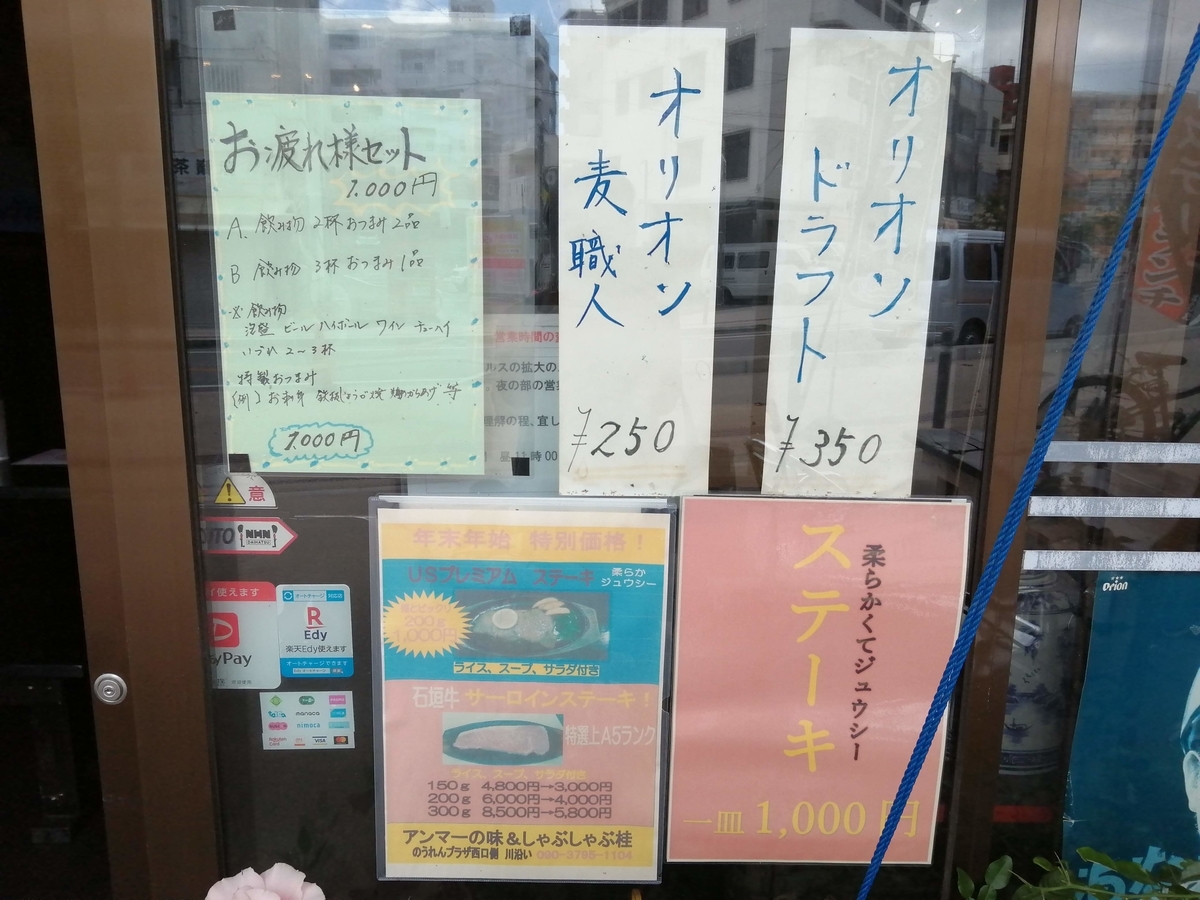 お疲れ様セット
1.000円
A. 飲み物 2杯 おつまみ 2品
B 飲み物 3杯 おつまみ 1品
※ 飲み物
泡盛 ビール ハイボール ワイン チューハイ
いづれ 2〜3杯
特製おつまみ
(例) お刺身 鉄板しょうが焼 鶏からあげ 等
1.000円
オリオン
麦職人
¥250
オリオン
ドラフト
¥350
営業時間の
ルスの拡大の
夜の部の営業
理解の程、宜し
昼 11時00
注意
NHN
SAIHATSU
使えます
yPay
オートチャージ
R
Edy
楽天Edy使えます
オートチャージできます
manaca
nimoca
VISA
年末年始 特別価格!
USプレミアム ステーキ
柔らか
ジュウシー
200g
1,000円
ライス、スープ、サラダ付き
石垣牛 サーロインステーキ!
特選上A5ランク
ライス、スープ、サラダ付き
150g 4,800円→3,000円
200g 6,000円→4,000円
300g 8,500円→5,800円
アンマーの味&しゃぶしゃぶ桂
のうれんプラザ西口側 川沿い 090-3795-1104
柔らかくてジュウシー
ステーキ
一皿 1,000円
Orion